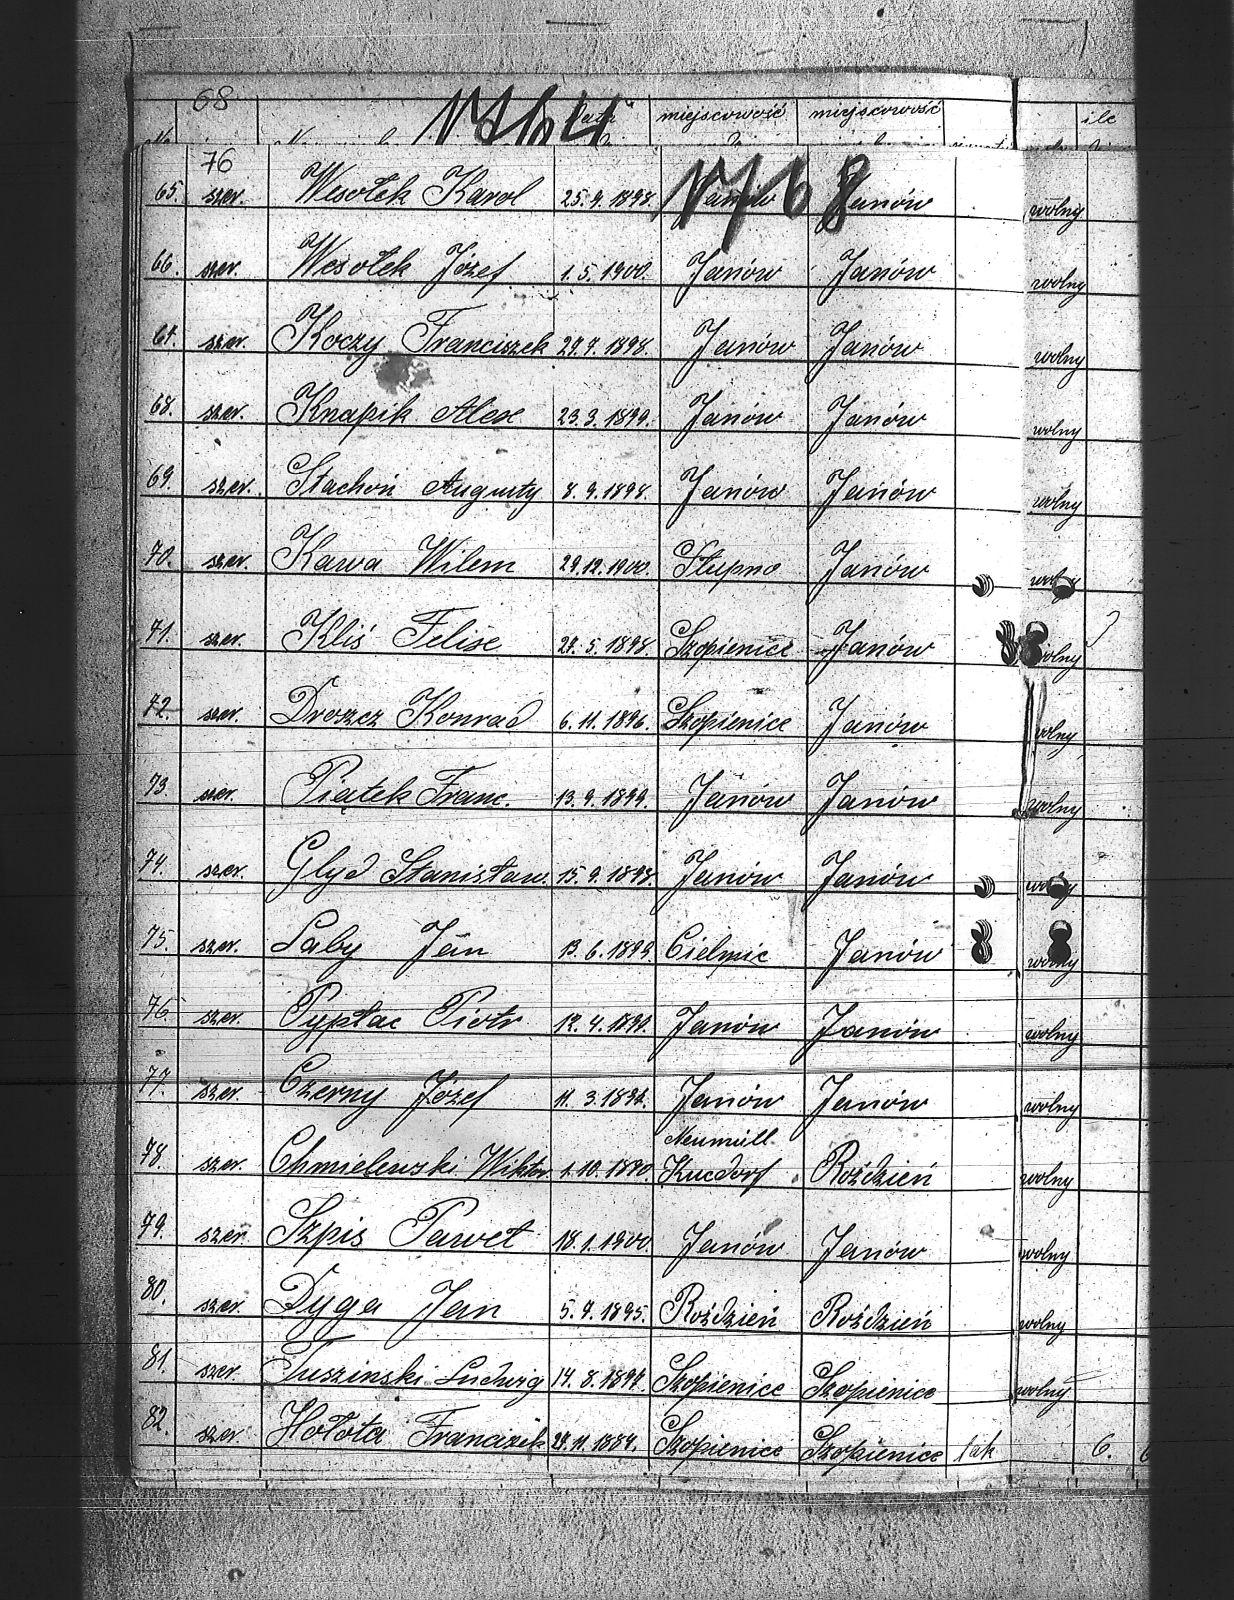 68 1764 miejscowość miejscowość ile
76 1768
65. szer. Wesołek Karol 25.9.1898. Janów Janów wolny
66. szer. Wesołek Józef 1.5.1900. Janów Janów wolny
67. szer. Koczy Franciszek 29.7.1898. Janów Janów wolny
68. szer. Knapik Alex 23.3.1899. Janów Janów wolny
69. szer. Stachoń Augusty 8.9.1898. Janów Janów wolny
70. szer. Kawa Wilem 29.12.1900. Słupno Janów wolny
71. szer. Kliś Felixe 29.5.1898 Szopienice Janów wolny
72. szer. Droszcz Konrad 6.11.1896. Szopienice Janów wolny
73. szer. Piątek Franc. 13.9.1899. Janów Janów wolny
74. szer. Glyd Stanisław. 15.9.1898. Janów Janów wolny
75. szer. Laby Jan 13.6.1899 Cielmic Janów wolny
76. szer. Pyptac Piotr 12.4.1891. Janów Janów wolny
77. szer. Czerny Józef 11.3.1891. Janów Janów wolny
Neumüll
78. szer. Chmielewski Wiktor 1.10.1890. Roździeń wolny
79. szer. Szpis Paweł 18.1.1900. Janów Janów wolny
80. szer. Dyga Jan 5.7.1895. Roździeń Roździeń wolny
81. szer. Tuszinski Ludwig 14.8.1891. Szopienice Szopienice wolny
82. szer. Hołota Franciszk 29.11.1884. Szopienice Szopienice tak 6.